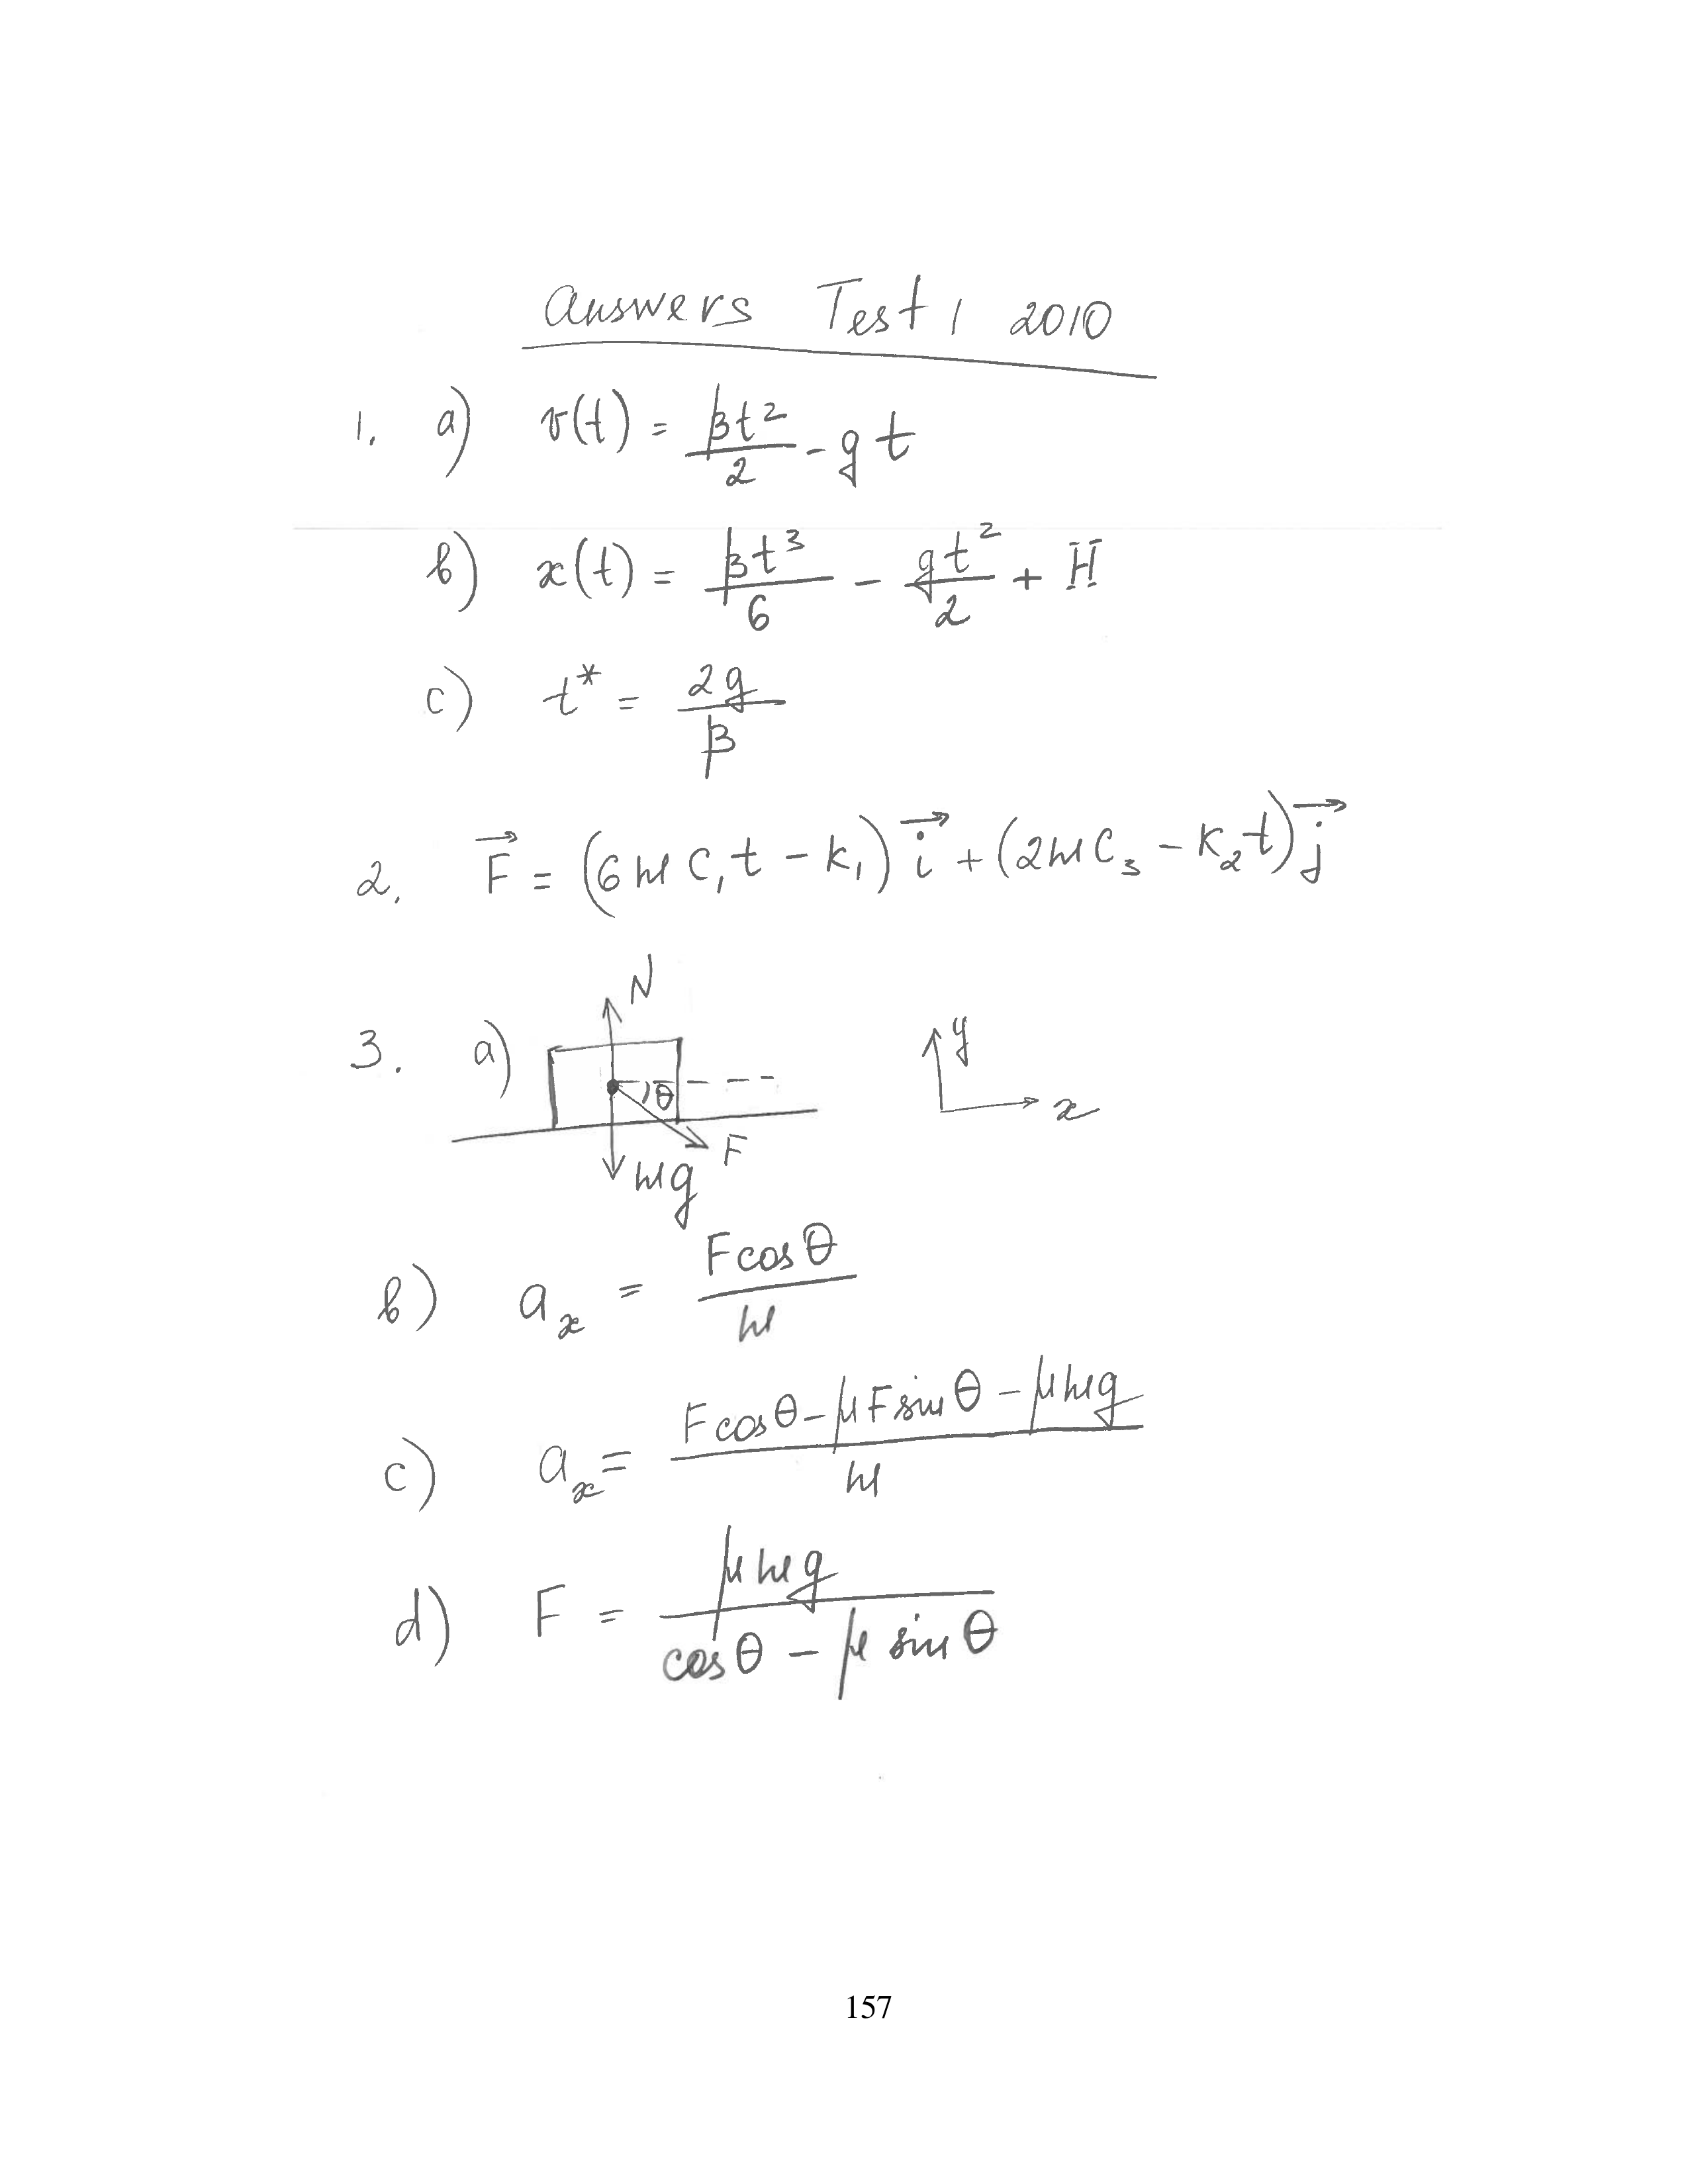 Answers Test 1 2010
1. a) v(t) = βt²/2 - gt
b) x(t) = βt³/6 - gt²/2 + H
c) t* = 2g/β
2. F⃗ = (6mC₁t - k₁) i⃗ + (2mC₃ - k₂t) j⃗
3. a) N y
θ x
F
mg
b) aₓ = Fcosθ/m
c) aₓ = (Fcosθ - μFsinθ - μmg)/m
d) F = μmg/(cosθ - μ sinθ)
157